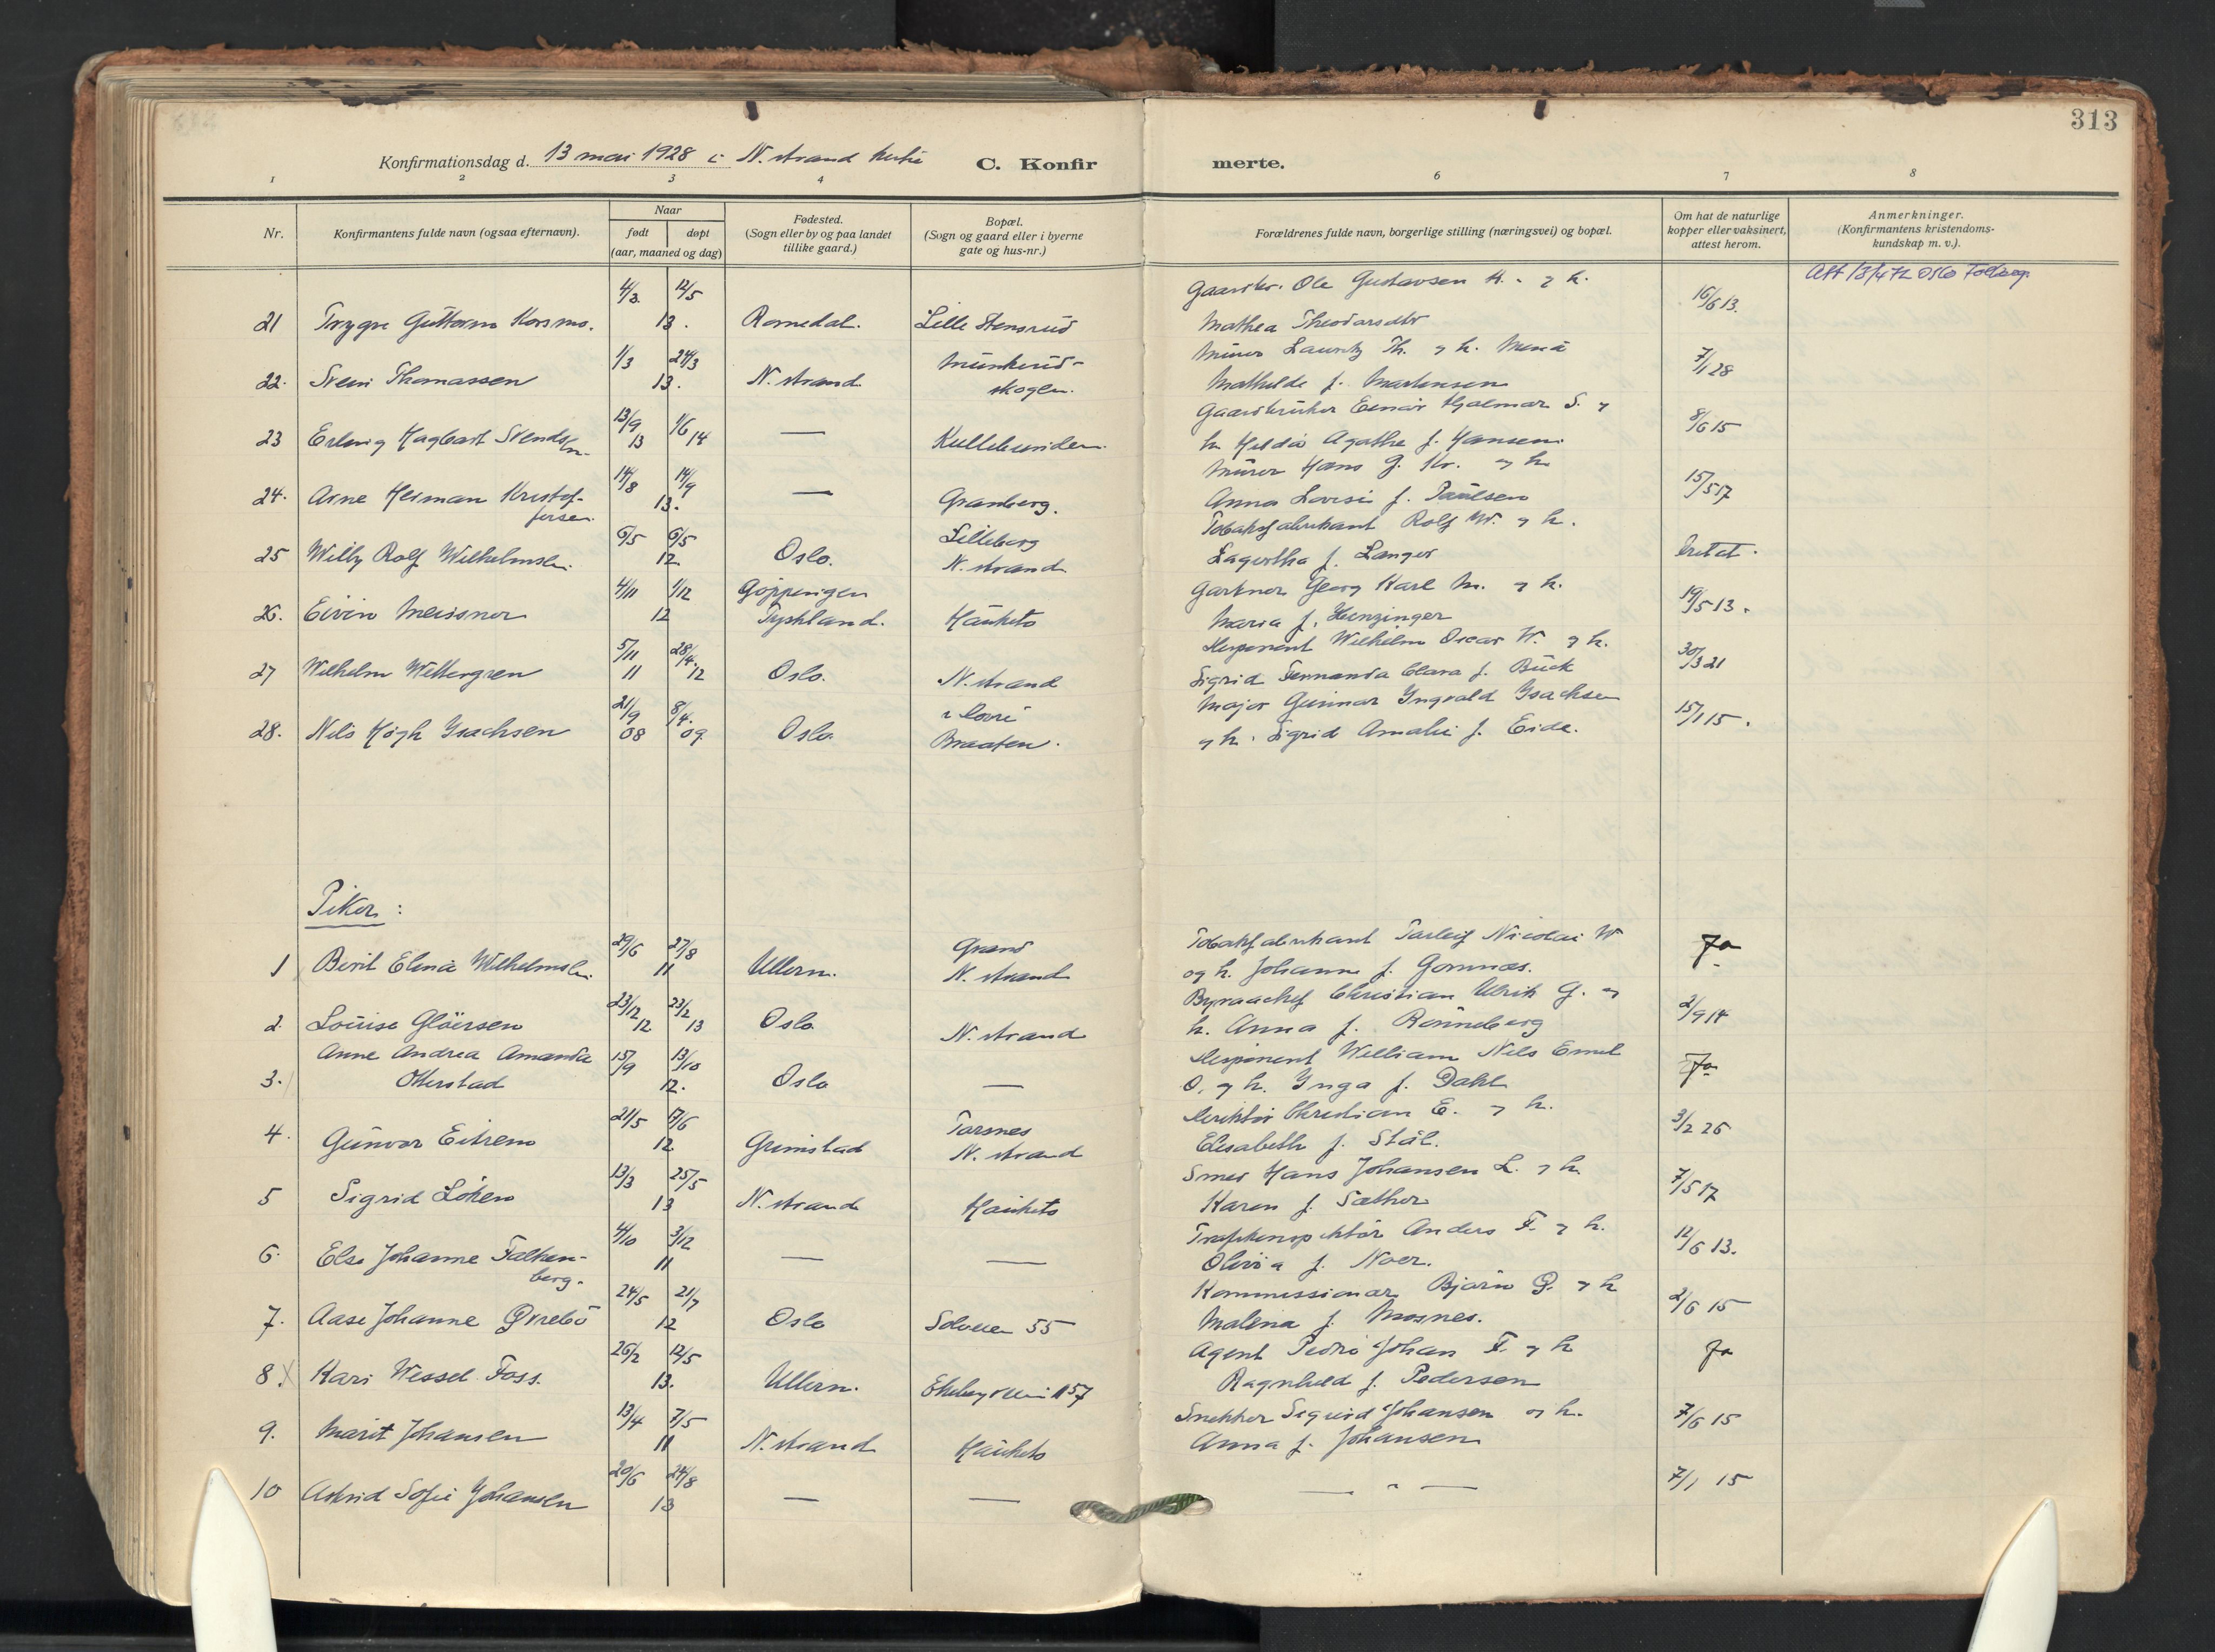 313
Konfirmationsdag d. 13 mai 1928 i N. strand kirke C. Konfir merte.
1 2 3 4 6 7 8
Nr. Konfirmantens fulde navn (ogsaa efternavn). Naar født døpt (aar, maaned og dag) Fødested. (Sogn eller by og paa landet tillike gaard.) Bopæl. (Sogn og gaard eller i byerne gate og hus-nr.) Forældrenes fulde navn, borgerlige stilling (næringsvei) og bopæl. Om hat de naturlige kopper eller vaksinert, attest herom. Anmerkninger. (Konfirmantens kristendoms-kundskap m. v.).
4/3 12/5 Gaardbr. Ole Gustavsen K. og h. 16/6 13. Att 13/4 72 Oslo Folkereg.
21 Trygve Guttorm Korsmo. 13. Romedal. Lille Stensrud Mathea Theodorsdtr
1/3 24/3 Munkerud- Murer Lauritz Th. og h.
22. Svein Thomassen 13. N. strand skogen. Mathilde f. Martinsen 7/1 28
13/9 1/6 Gaardbruker Einar Hjalmar S. og
23 Erling Hagbart Svendsen. 13 14 — Kullebunden. h. Hilda Agathe f. Hansen. 8/6 15
14/8 14/9 Murer Hans G. Kr. og h.
24. Arne Herman Kristof- 13. — Granberg. Anna Lovise f. Paulsen 15/5 17
fersen.
6/5 6/5 Lilleberg Tobakfabrikant Rolf W. og h.
25 Willy Rolf Wilhelmsen. 12 Oslo. N. strand Lagertha f. Langer
4/11 1/12 Göppingen Gartner Georg Karl M. og h.
26. Eivin Meissner 12 Tyskland. Hauketo Maria f. Henzinger 19/5 13.
5/11 28/4 Disponent Wilhelm Oscar W. og h.
27 Wilhelm Wettergren 11 12 Oslo. N. strand Sigrid Fernanda Clara f. Buck 30/3 21
21/9 8/4. Major Gunnar Ingvald Isachsen
28. Nils Høgh Isachsen 08 09 Oslo. Braaten. og h. Sigrid Amalie f. Eide. 15/1 15.
Piker:
29/6 27/8 Grand Tobakfabrikant Torleif Nicolai W
1 Berit Elena Wilhelmsen. 11 Ullern. N. strand og h. Johanne f. Gomnæs. Ja
23/12 23/2 Byraachef Christian Ulrik G. og
2. Louise Gløersen 12 13 Oslo N. strand h. Anna f. Rønneberg 2/9 14
Anne Andrea Amanda 15/9 13/10 Disponent William Nils Emil
3. Otterstad 12. Oslo — O. og h. Inga f. Dahl Ja
21/5 17/6 Tarsnes Direktør Christian E. og h.
4. Gunvor Eitrem 12 Grimstad N. strand Elisabeth f. Stål. 3/2 26
13/3 25/5 Smed Hans Johansen L. og h.
5 Sigrid Løken 13 N. strand Hauketo Karen f. Sæther 7/5 17
4/10 3/12 Trafikinspektør Anders F. og h.
6. Else Johanne Falken- 11 — — Olivia f. Noer. 12/6 13.
berg.
24/5 21/7 Kommissionær Bjarne G. og h
7. Aase Johanne Grebø 12 Oslo Solveien 55 Malena f. Mosnes. 2/6 15
26/2 12/5 Agent Pedro Johan F. og h
8. Kari Wessel Foss. 13. Ullern. Ekebergveien 157 Ragnhild f. Pedersen Ja
13/4 7/5 Snekker Sigurd Johansen og h.
9. Marit Johansen 11 N. strand Hauketo Anna f. Johansen 7/6 15
20/6 24/8
10 Astrid Sofie Johansen 13 — — — " — 7/1 15